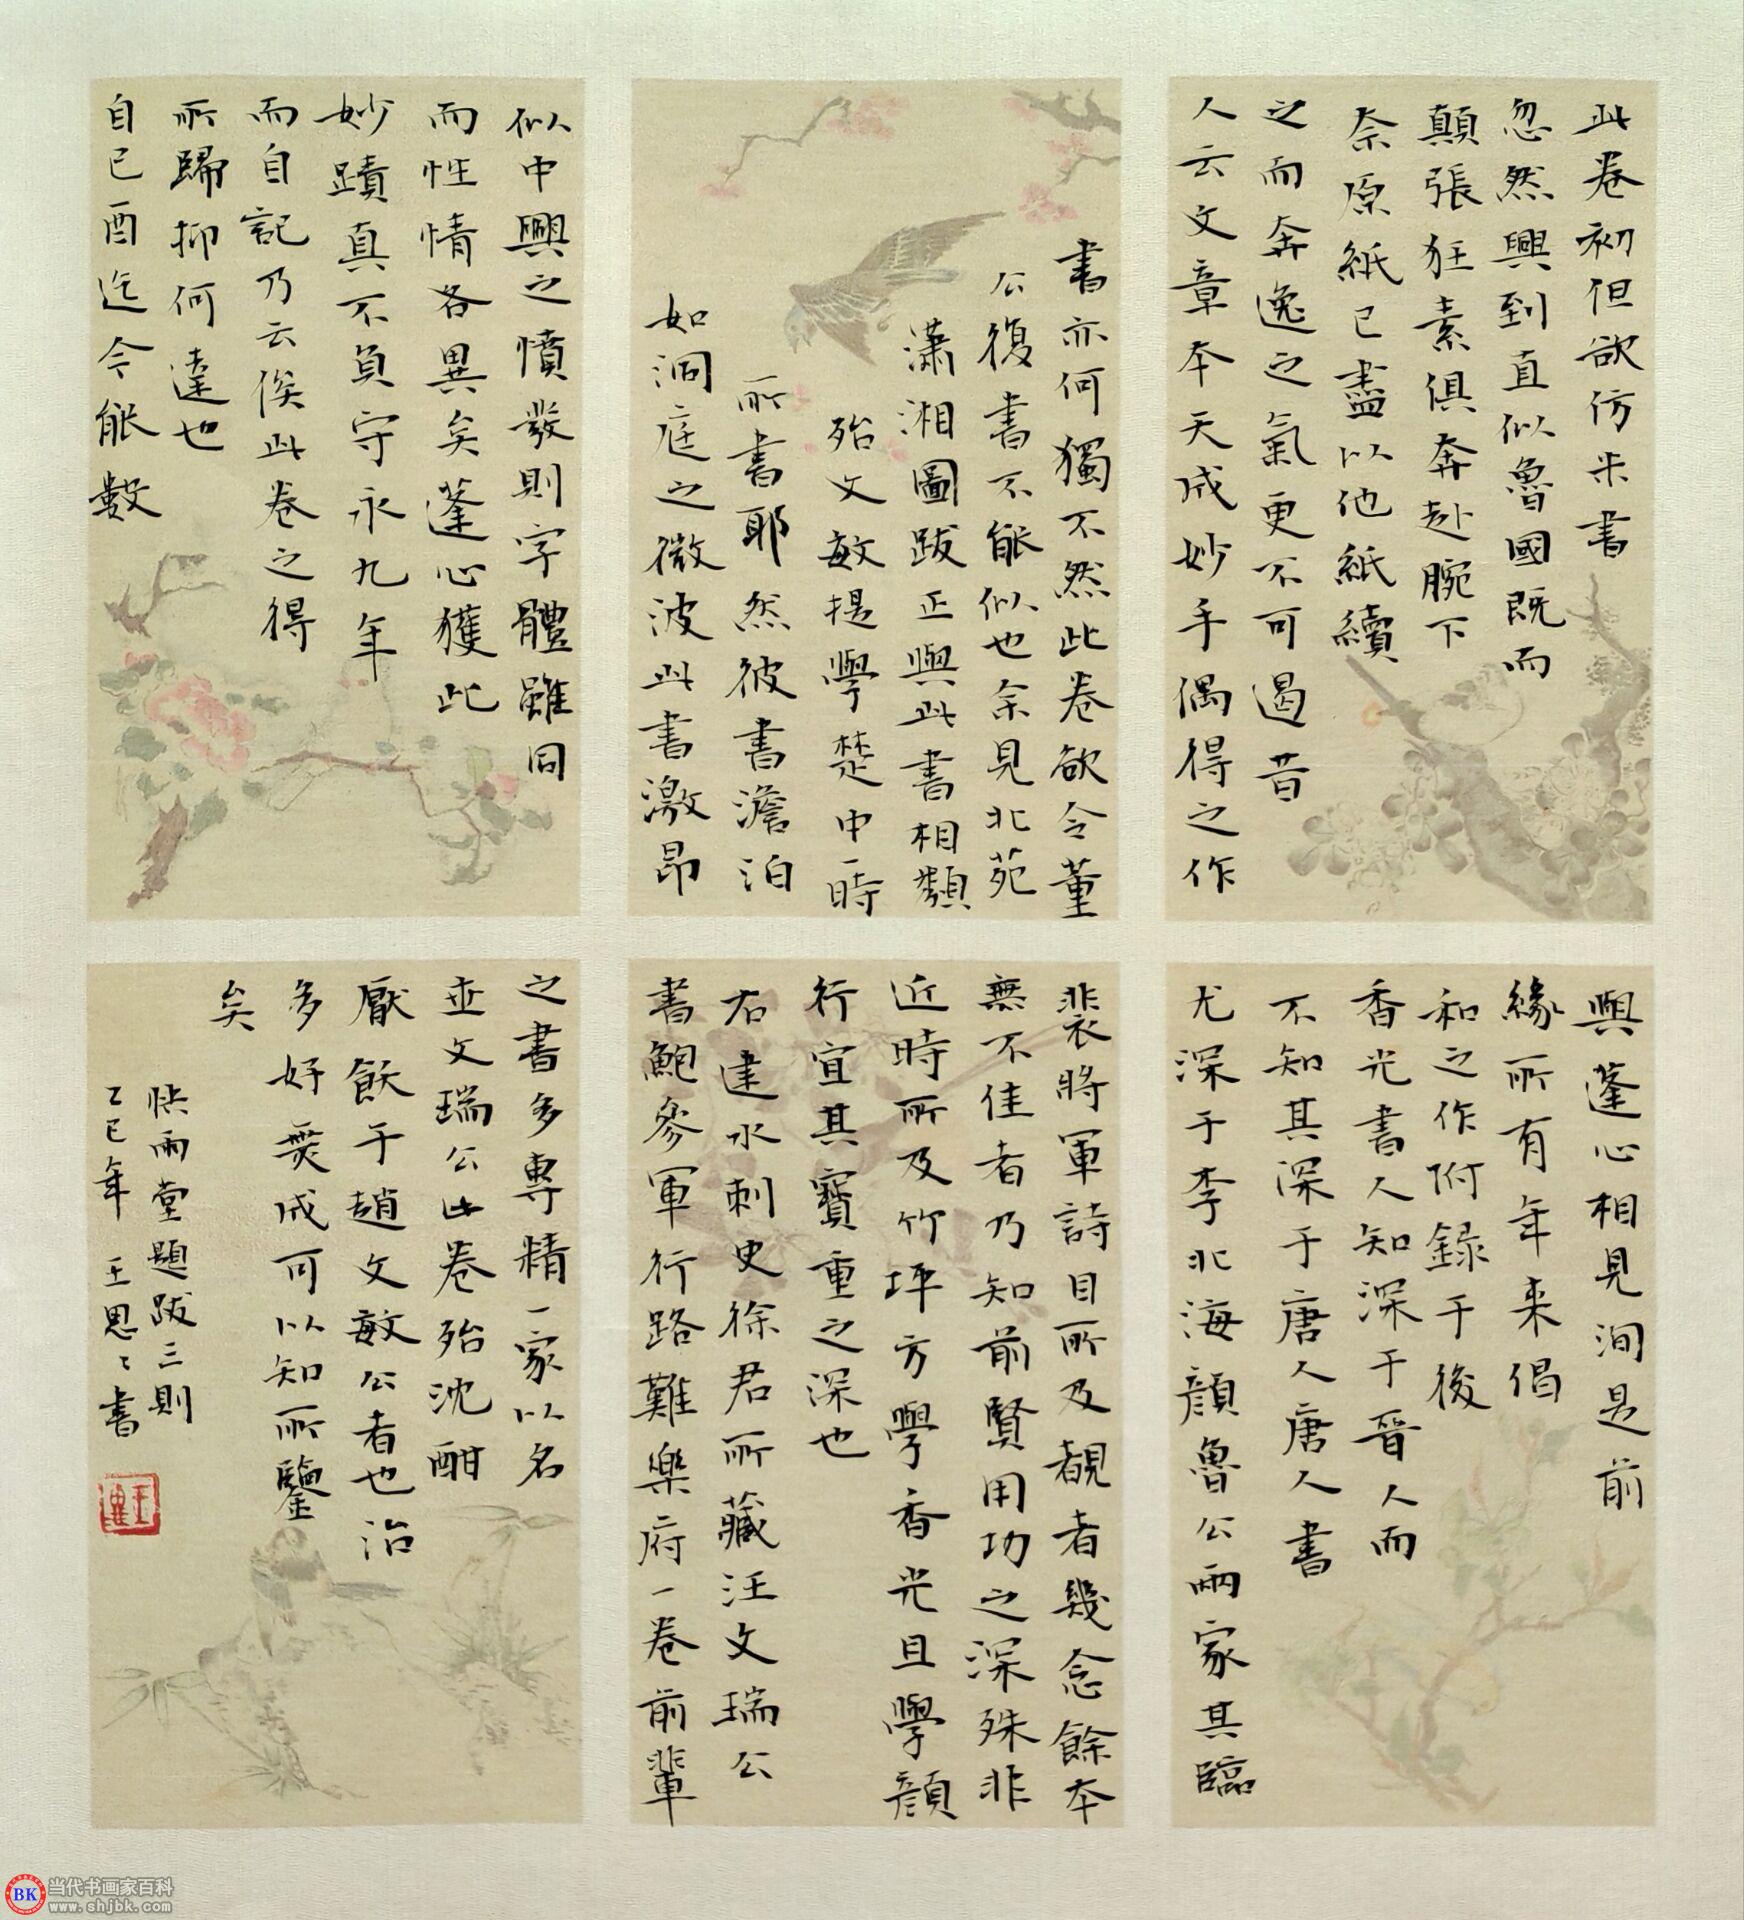 此卷初但欲仿米書
忽然興到直似魯國既而
顛張狂素俱奔赴腕下
奈原紙已盡以他紙續
之而奔逸之氣更不可遏昔
人云文章本天成妙手偶得之作
書亦何獨不然此卷欲令董
公復書不能似也余見北苑
瀟湘圖跋正與此書相類
殆文敏提學楚中時
所書耶然彼書澹泊
如洞庭之微波此書激昂
似中興之憤發則字體雖同
而性情各異矣蓬心獲此
妙蹟真不負守永九年
而自記乃云俟此卷之得
所歸抑何達也
自己酉迄今能數
與蓬心相見洵是前
緣所有年来倡
和之作附録于後
香光書人知深于晉人而
不知其深于唐人唐人書
尤深于李北海顏魯公兩家其臨
裴將軍詩目所及覩者幾念餘本
無不佳者乃知前賢用功之深殊非
近時所及竹坪方學香光且學顏
行宜其寶重之深也
右建水刺史徐君所藏汪文瑞公
書鮑參軍行路難樂府一卷前輩
之書多專精一家以名
世文瑞公此卷殆沈酣
厭飫于趙文敏公者也治
多好無成可以知所鑒
矣
快雨堂題跋三則
乙巳年 王思〻書
当代书画家百科
www.shjbk.com
BK